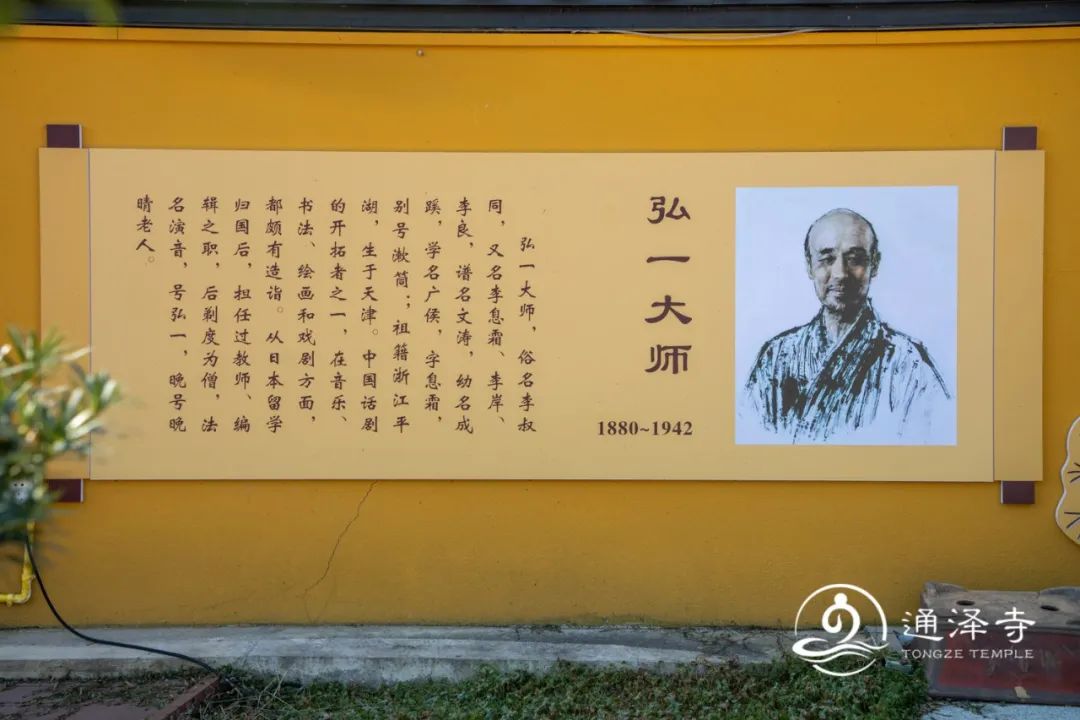 弘一大师
1880~1942
弘一大师，俗名李叔
同，又名李息霜、李岸、
李良，谱名文涛，幼名成
蹊，学名广侯，字息霜，
别号漱筒；祖籍浙江平
湖，生于天津。中国话剧
的开拓者之一，在音乐、
书法、绘画和戏剧方面，
都颇有造诣。从日本留学
归国后，担任过教师、编
辑之职，后剃度为僧，法
名演音，号弘一，晚号晚
晴老人。
通泽寺
TONGZE TEMPLE